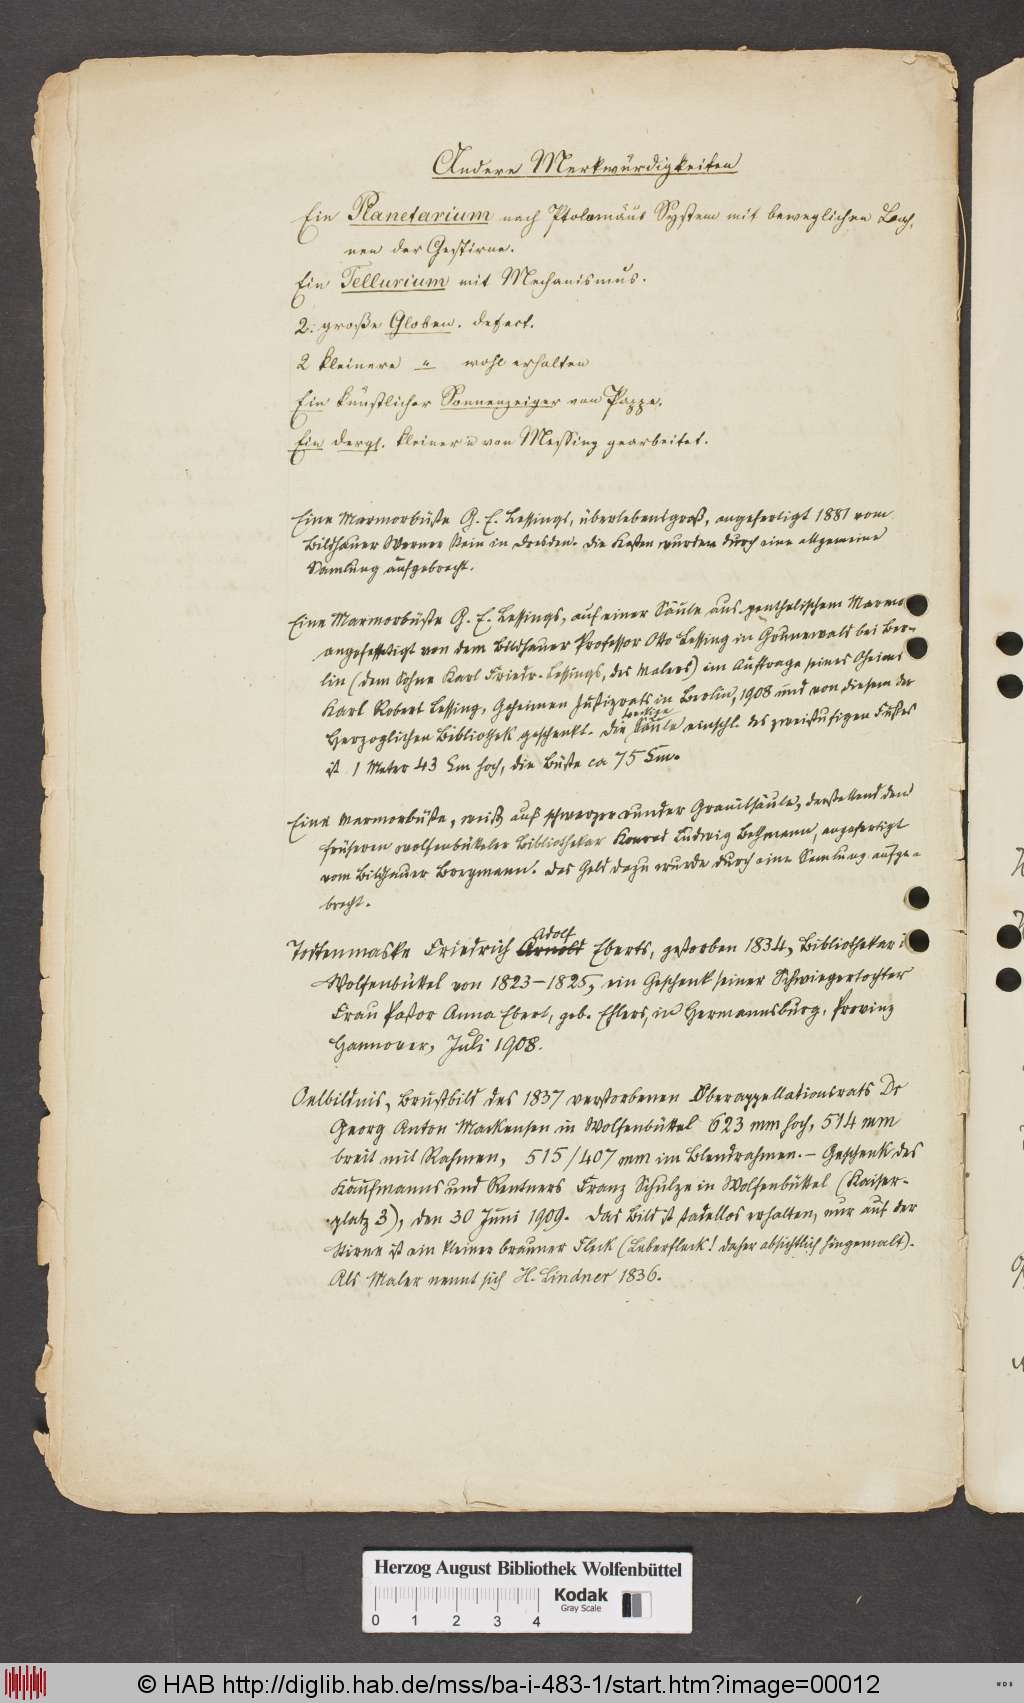 Andere Merkwürdigkeiten
Ein Planetarium nach Ptolemäus System mit beweglichen Bah,
nen der Gestirne.
Ein Tellurium mit Mechanismus.
2. große Globen. defect.
2 kleinere " wohl erhalten
Ein künstlicher Sonnenzeiger von Pappe.
Ein dergl. kleiner u von Messing gearbeitet.
Eine Marmorbüste G. E. Lessings, überlebensgroß, angefertigt 1881 vom
Bildhauer Werner Stein in Dresden. Die Kosten wurden durch eine allgemeine
Samlung aufgebracht.
Eine Marmorbüste G. E. Lessings, auf einer Säule aus penthelischem Marmo
angefertigt von dem Bildhauer Professor Otto Lessing in Grunewald bei Ber-
lin (dem Sohne Karl Friedr. Lessings, des Malers) im Auftrage seines Oheims
Karl Robert Lessing, Geheimen Justizrats in Berlin, 1908 und von diesem der
Herzoglichen Bibliothek geschenkt. Die 4eckige Säule einschl. des zweistufigen Fußes
ist 1 Meter 43 Cm hoch, die Büste ca 75 Cm.
Eine Marmorbüste, weiß auf schwarzer runder Granitsäule, darstellend den
früheren wolfenbütteler Bibliothekar Konrad Ludwig Bethmann, angefertigt
vom Bildhauer Borgmann. Das Geld dazu wurde durch eine Samlung aufge-
bracht.
Todtenmaske Friedrich Adolf Arnold Eberts, gestorben 1834, Bibliothekar i
Wolfenbüttel von 1823-1825, ein Geschenk seiner Schwiegertochter
Frau Pastor Anna Ebert, geb. Ehlers, in Hermannsburg, Provinz
Hannover, Juli 1908.
Oelbildnis, Brustbild des 1837 verstorbenen Oberappellationsrats Dr
Georg Anton Mackensen in Wolfenbüttel 623 mm hoch, 514 mm
breit mit Rahmen, 515/407 mm im Blendrahmen. – Geschenk des
Kaufmanns und Rentners Franz Schulze in Wolfenbüttel (Kaiser-
platz 3), den 30 Juni 1909. Das Bild ist tadellos erhalten, nur auf der
Stirne ist ein kleiner brauner Fleck (Leberfleck! daher absichtlich hingemalt).
Als Maler nennt sich H. Lindner 1836.
Herzog August Bibliothek Wolfenbüttel
0 1 2 3 4
Kodak
Gray Scale
© HAB http://diglib.hab.de/mss/ba-i-483-1/start.htm?image=00012